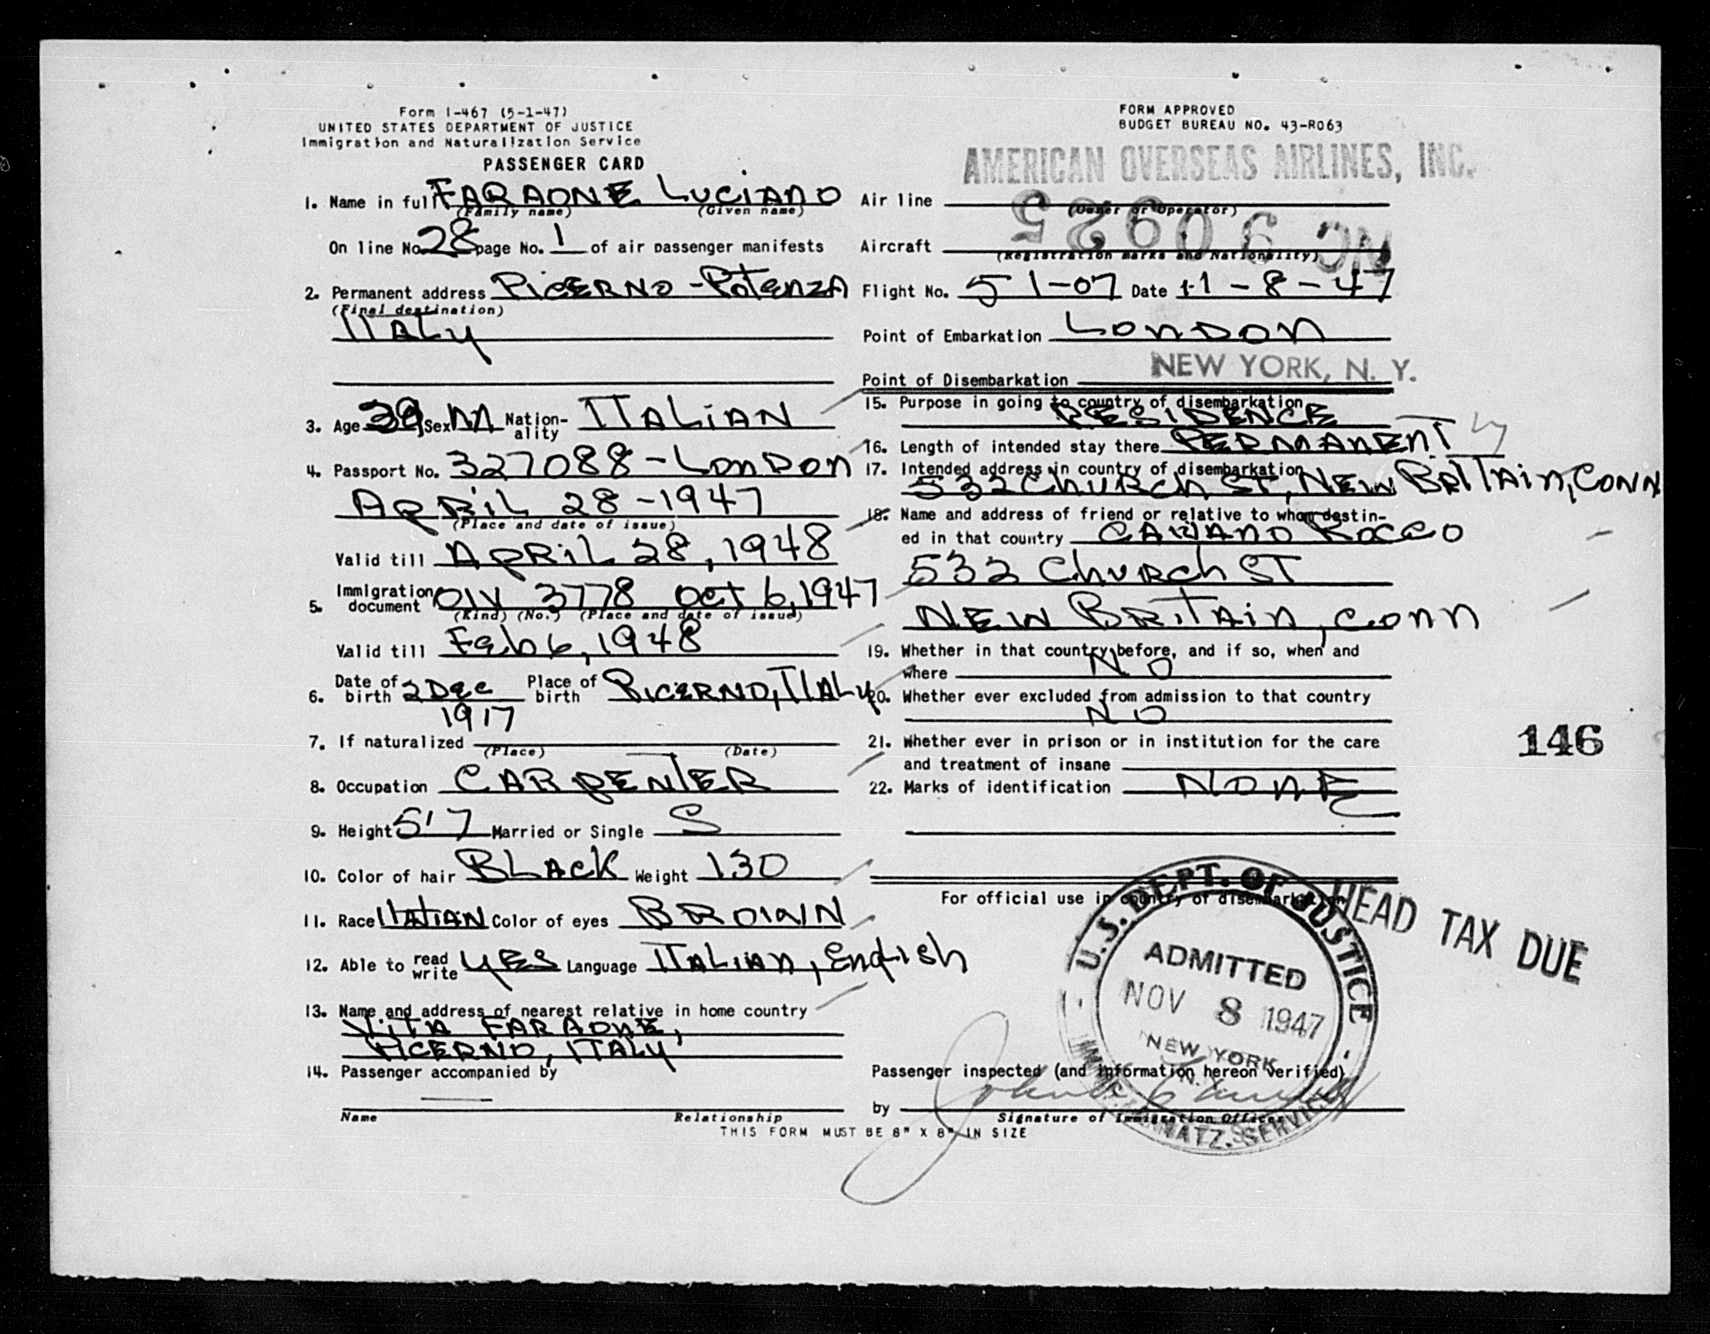 Form I-467 (5-1-47)
UNITED STATES DEPARTMENT OF JUSTICE
Immigration and Naturalization Service
PASSENGER CARD
1. Name in full FARAONE LUCIANO
(Family name) (Given name)
On line No. 28 page No. 1 of air passenger manifests
2. Permanent address PICERNO - POTENZA
(Final destination)
ITALY
3. Age Sex M Nationality ITALIAN
4. Passport No. 327088 - LONDON
APRIL 28 - 1947
(Place and date of issue)
Valid till APRIL 28, 1948
5. Immigration document 3778 OCT 6, 1947
(Kind) (No.) (Place and date of issue)
Valid till Feb 6, 1948
6. Date of birth 2 Dec 1917 Place of birth PICERNO, ITALY
7. If naturalized
(Place) (Date)
8. Occupation CARPENTER
9. Height 5'7 Married or Single S
10. Color of hair BLACK Weight 130
11. Race ITALIAN Color of eyes BROWN
12. Able to read write YES Language ITALIAN, English
13. Name and address of nearest relative in home country
VITA FARAONE,
PICERNO, ITALY
14. Passenger accompanied by
Name Relationship
THIS FORM MUST BE 8" X 8" IN SIZE
FORM APPROVED
BUDGET BUREAU NO. 43-R063
AMERICAN OVERSEAS AIRLINES, INC.
Air line
(Owner or Operator)
Aircraft NC 90925
(Registration marks and Nationality)
Flight No. 51-07 Date 11-8-47
Point of Embarkation LONDON
Point of Disembarkation NEW YORK, N. Y.
15. Purpose in going to country of disembarkation
RESIDENCE
16. Length of intended stay there PERMANENT
17. Intended address in country of disembarkation
532 CHURCH ST, NEW BRITTAIN, CONN
18. Name and address of friend or relative to whom destin-
ed in that country ROCCO
532 CHURCH ST
NEW BRITAIN, CONN
19. Whether in that country before, and if so, when and
where NO
20. Whether ever excluded from admission to that country
NO
21. Whether ever in prison or in institution for the care
and treatment of insane
22. Marks of identification NONE
146
For official use in country of disembarkation
HEAD TAX DUE
U.S. DEPT. OF JUSTICE
ADMITTED
NOV 8 1947
NEW YORK
N.Y.
IMMIG. & NATZ. SERVICE
Passenger inspected (and information hereon verified)
by John
Signature of Immigration Officer